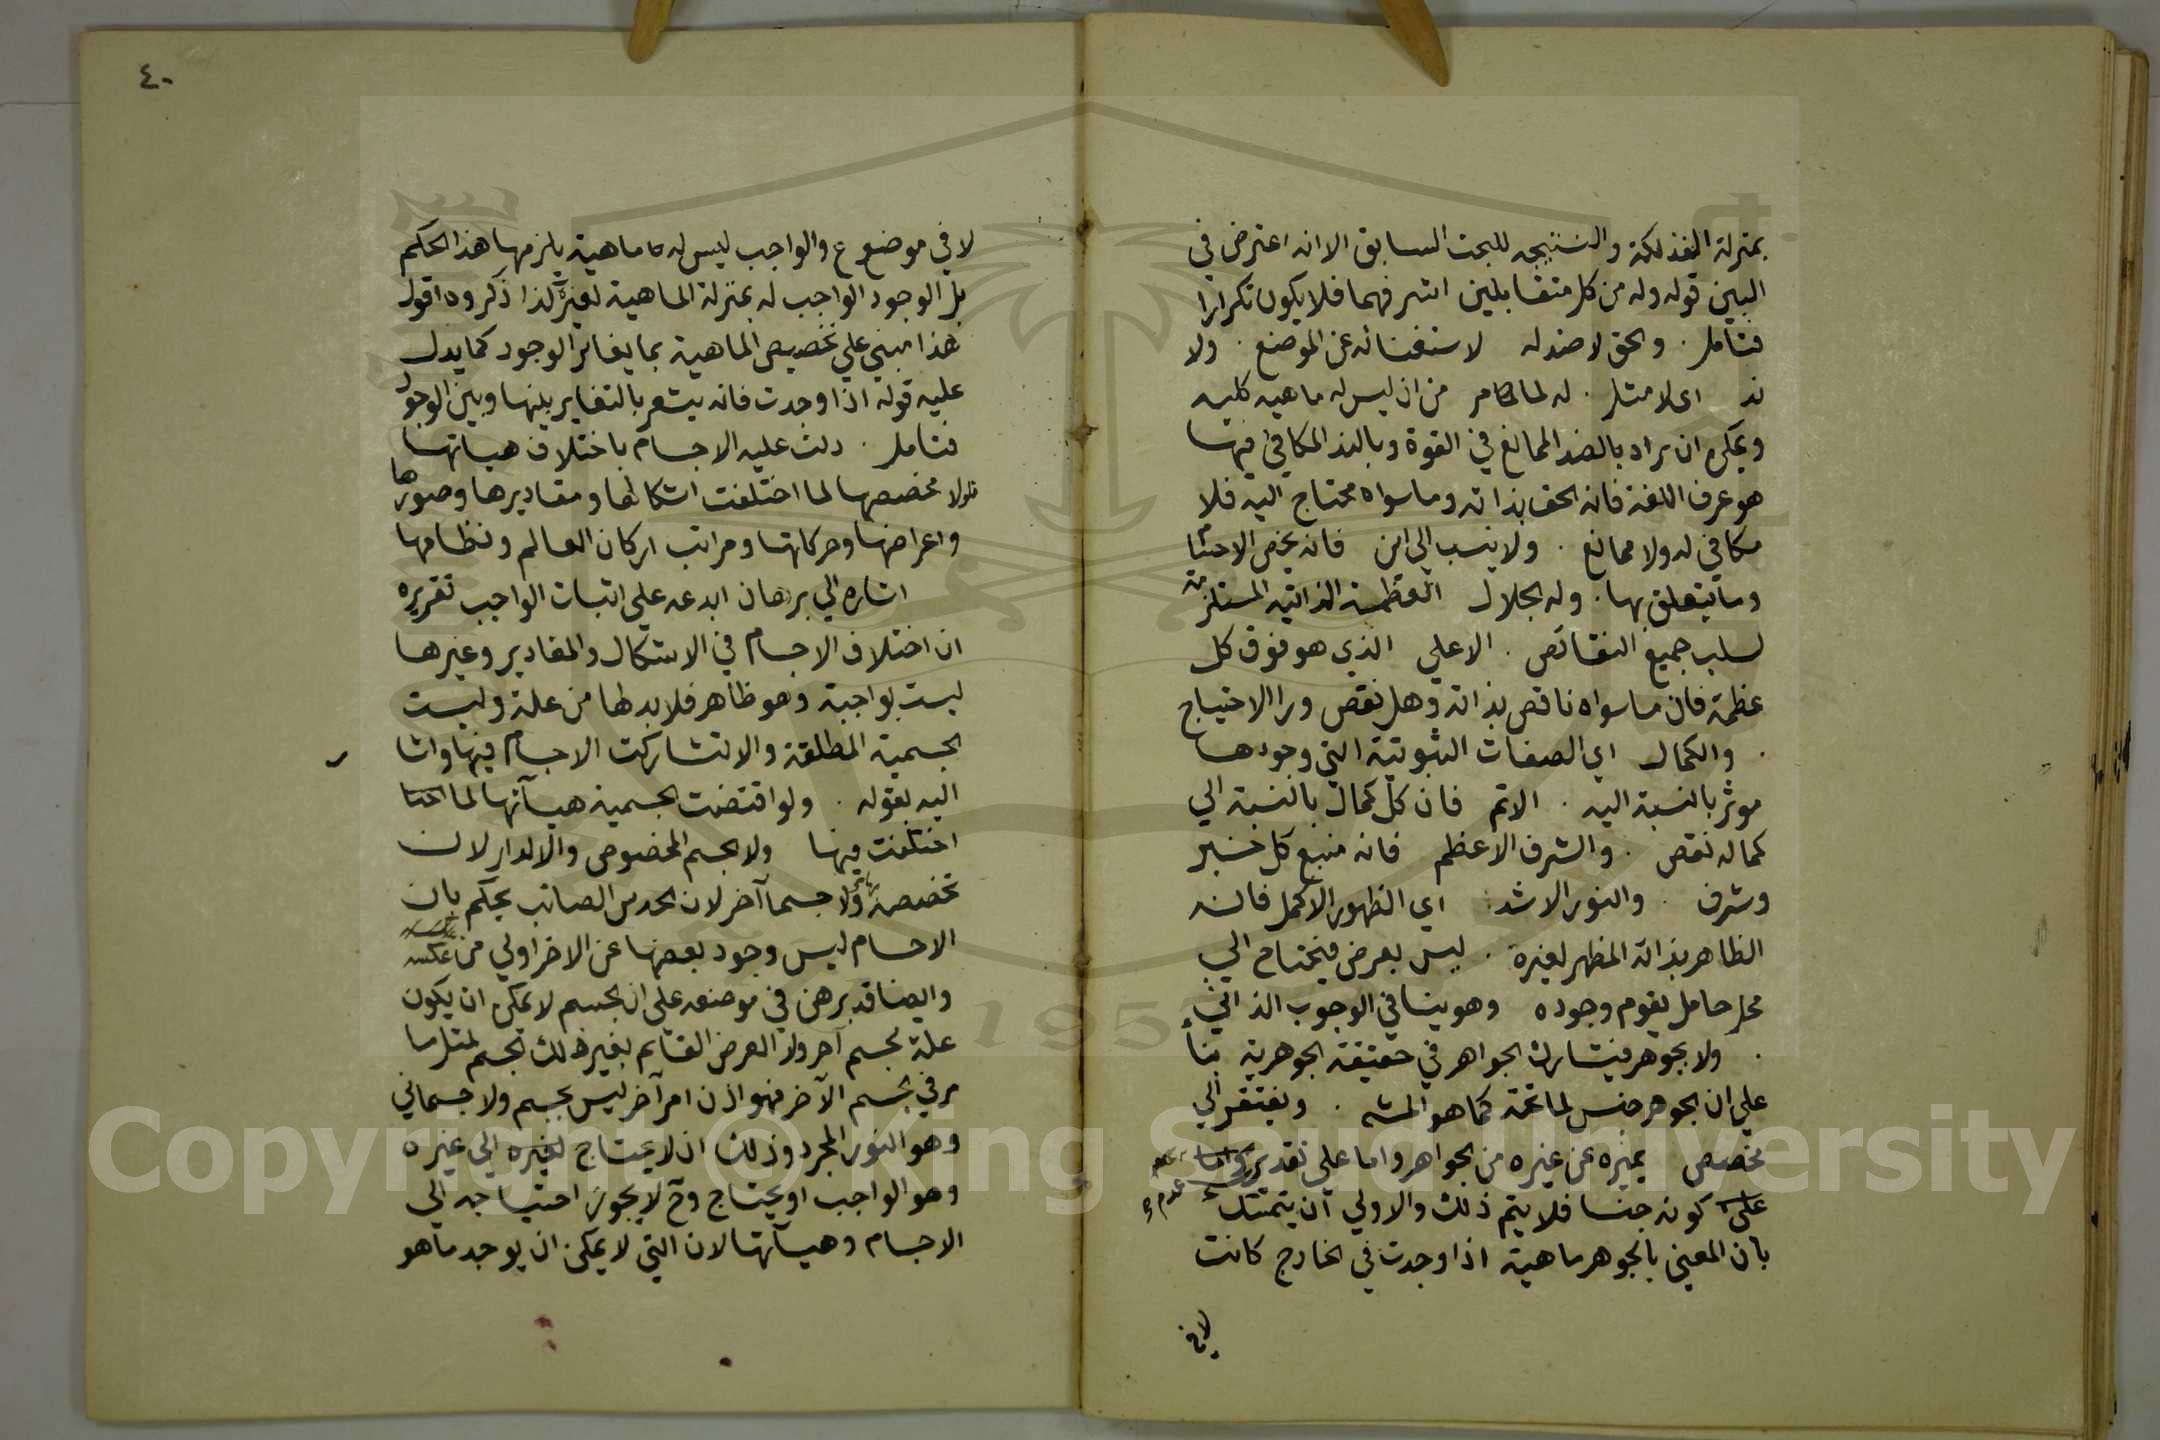 بمنزلة الفذلكة والنتيجه للبحث السابق الا انه اعترض في
البين قوله وله من كل متقابلين اشرفهما فلا يكون تكرارا
فتأمل . والحق لا ضد له لاستغنائه عن الموضع . ولا
ند اى لا مثل . له لما مر من ان ليس له ماهيه كليه
ويمكن ان يراد بالضد الممانع في القوة وبالند المكافئ فيها
هو عرف اللغة فانه الحق بذاته وما سواه محتاج اليه فلا
مكافئ له ولا ممانع . ولا ينسب الى اين فانه يخص الاجسام
وما يتعلق بها . وله الجلال العظمة الذاتيه المستلزمة
لسلب جميع النقائص . الاعلي الذي هو فوق كل
عظمة فان ما سواه ناقص بذاته وهل نقص ورا الاحتياج
. والكمال اي الصفات الثبوتية التي وجودها
موثر بالنسبة اليه . الاتم فان كل كمال بالنسبة الي
كماله نقص . والشرف الاعظم فانه منبع كل خير
وشرف . والنور الاشد . اي الظهور الاكمل فانه
الظاهر بذاته المظهر لغيره . ليس بعرض فيحتاج الي
محل حامل يقوم وجوده وهو ينافي الوجوب الذاتي
. ولا بجوهر فيشارك الجواهر في حقيقة الجوهرية بنأ
علي ان الجوهر جنس لما تحته كما هو المشه . ويفتقر الي
مخصص يميزه عن غيره من الجواهر واما على تقدير
عدم
كونه جنسا فلا يتم ذلك والاولي ان يتمسك
بان المعني بالجوهر ماهية اذا وجدت في الخارج كانت
لا في
٤٠
لا في موضوع والواجب ليس له ماهية يلزمها هذا الحكم
بل الوجود الواجب له بمنزلة الماهية لغيره كذا ذكروه اقول
هذا مبني علي تخصيص الماهية بما يغاير الوجود كما يدل
عليه قوله اذا وجدت فانه يشعر بالتغاير بينها وبين الوجود
فتأمل . دلت عليه الاجسام باختلاف هيأتها
فلولا مخصصها لما اختلفت اشكالها ومقاديرها وصورها
واعراضها وحركاتها ومراتب اركان العالم ونظامها
اشاره الي برهان ابدعه علي اثبات الواجب تقريره
ان اختلاف الاجسام في الاشكال والمقادير وغيرها
ليست بواجبة وهو ظاهر فلا بد لها من علة وليست
الجسمية المطلقة والا لتشاركت الاجسام فيها واشا
اليه بقوله . ولو اقتضت الجسمية هيآتها لما
اختلفت فيها ولا الجسم المخصوص والا لدار لان
تخصصه بها ولا جسما آخر لان الحدس الصائب يحكم بان
الاجسام ليس وجود بعضها عن الاخر اولي من عكسه
وايضا قد برهن في موضعه على ان الجسم لا يمكن ان يكون
علة لجسم آخر ولا العرض القايم بغير ذلك الجسم لمثل ما
مر في الجسم الآخر فهو اذن امر آخر ليس بجسم ولا جسماني
وهو النور المجرد وذلك ان لا يحتاج الي غيره
وهو الواجب او يحتاج وح لا يجوز احتياجه الى
الاجسام وهيآتها لان التي لا يمكن ان يوجد ما هو
Copyright © King Saud University
1957